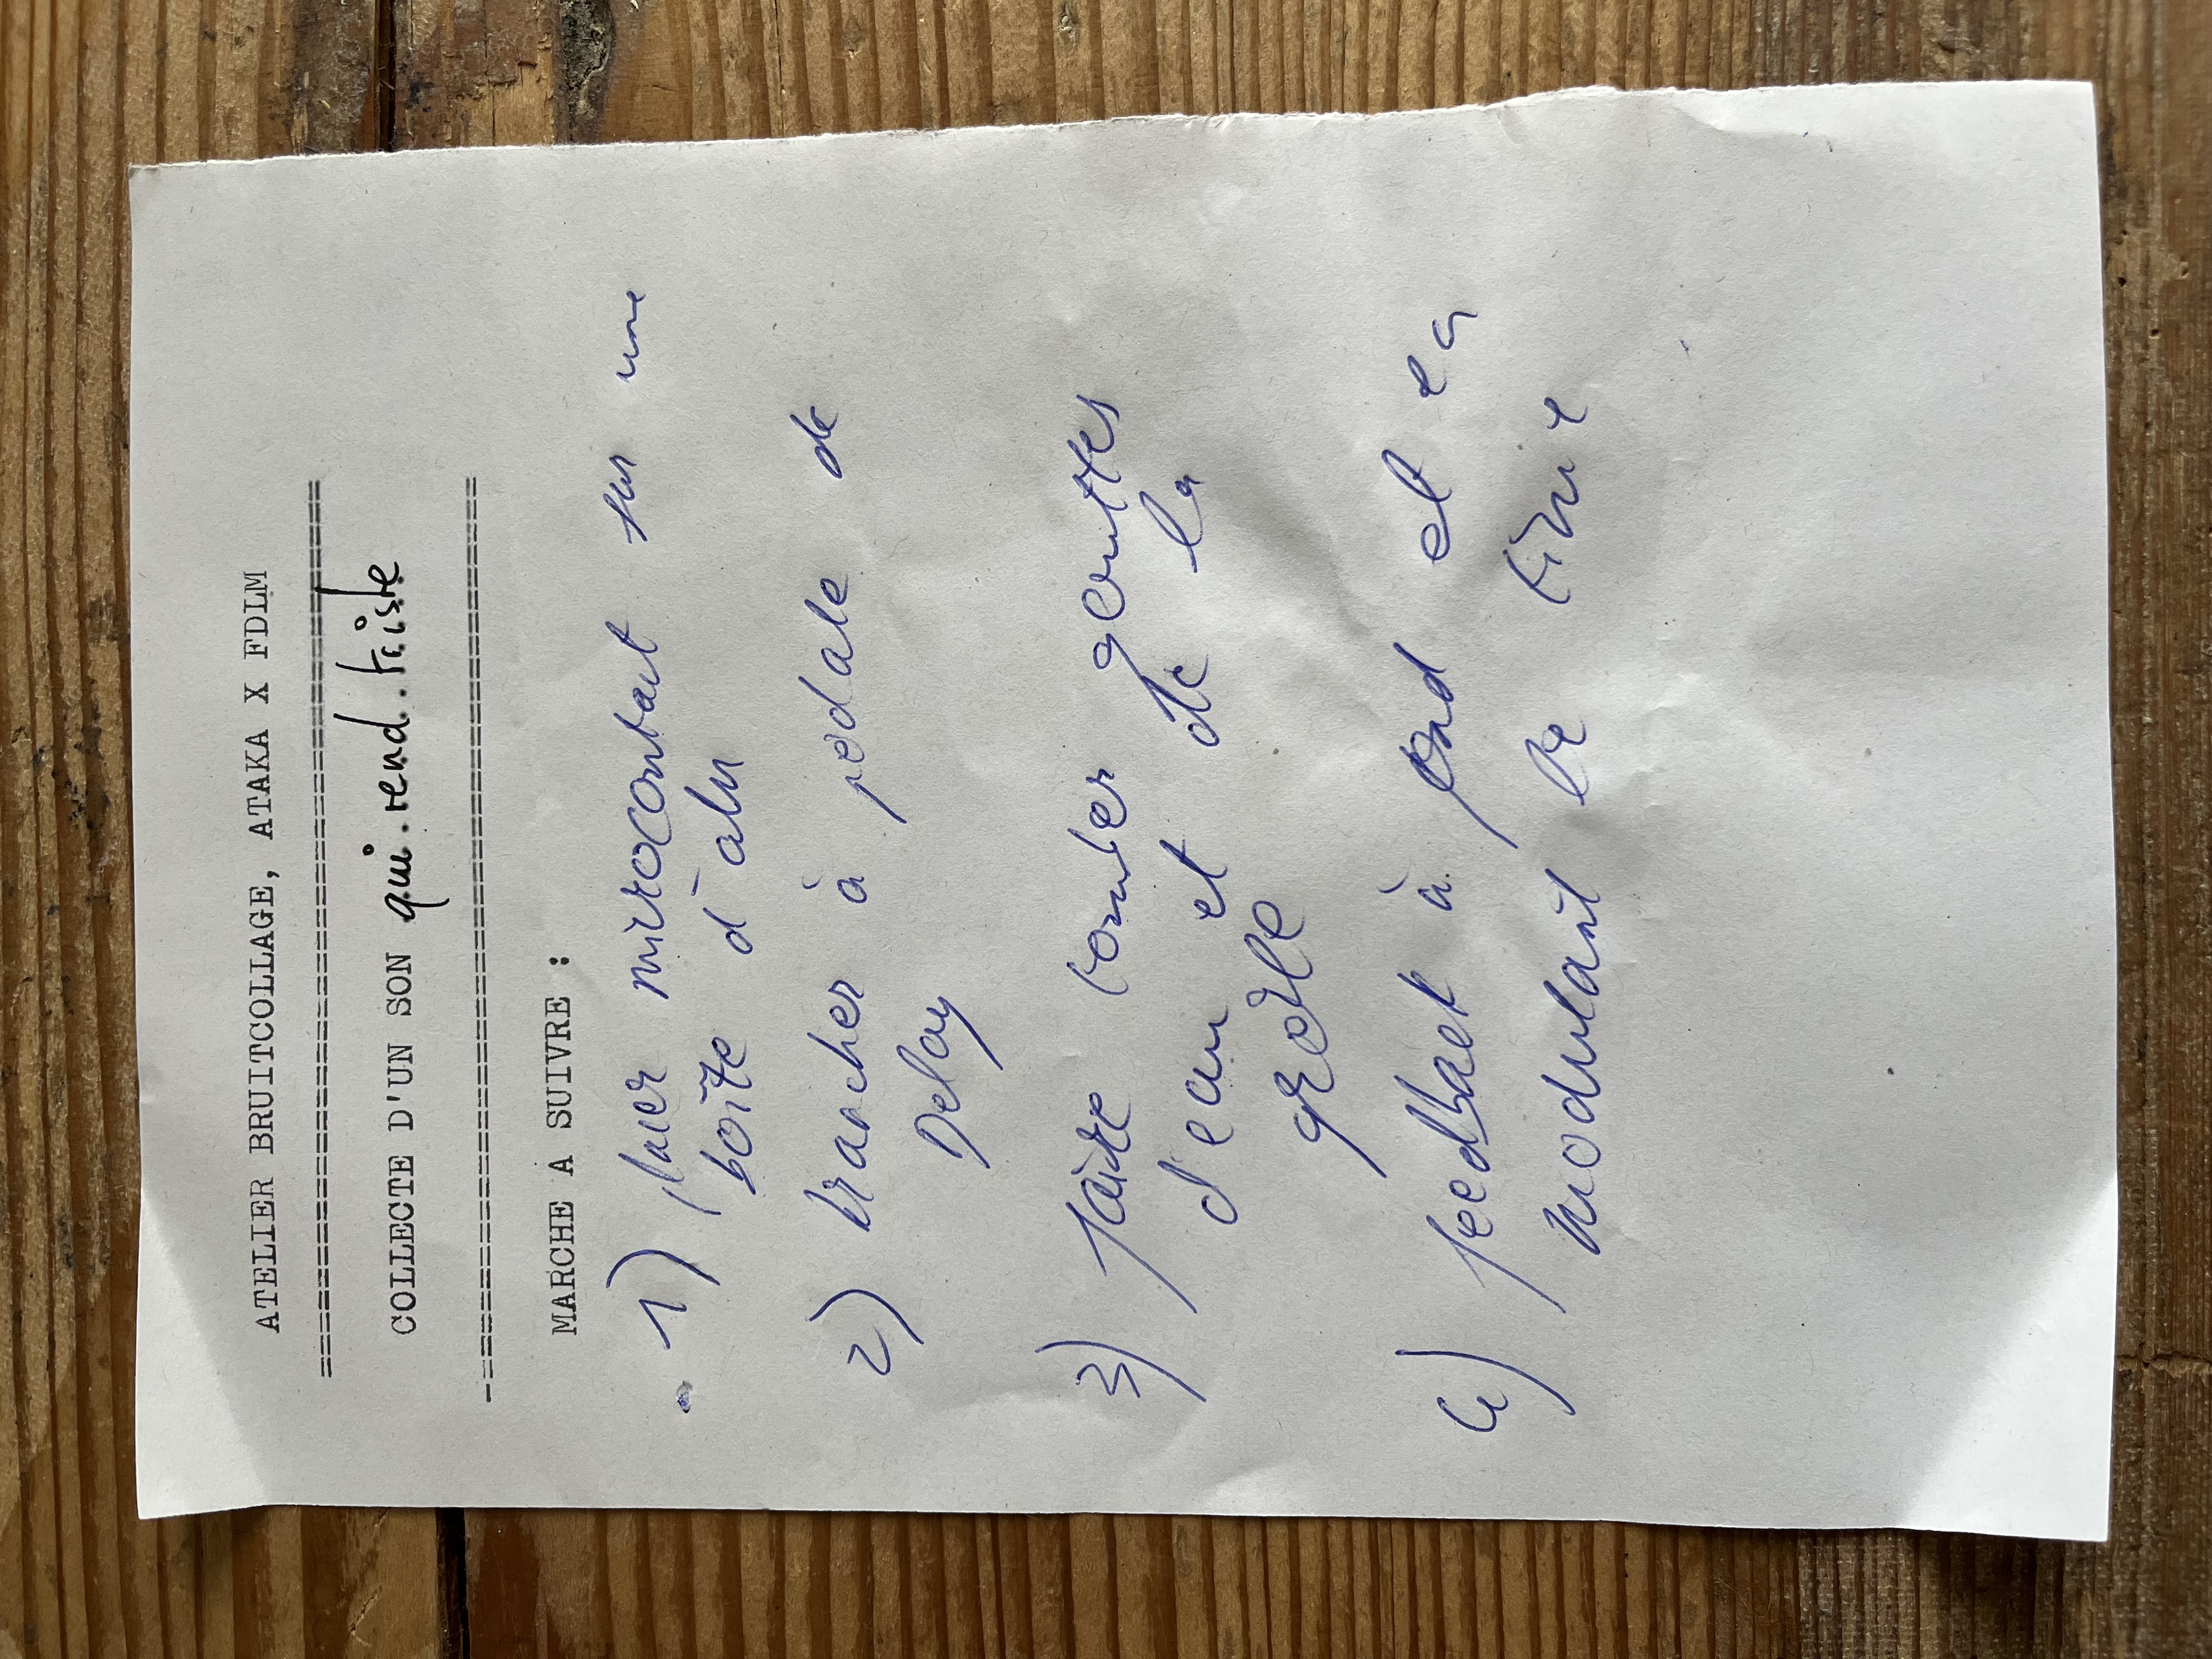 ATELIER BRUITCOLLAGE, ATAKA X FDLM
==============================
COLLECTE D'UN SON qui rend triste
==============================
MARCHE A SUIVRE :
1) fixer microcontact sur une
boîte d'alu
2) brancher à pedale de
Delay
3) faire tomber gouttes
d'eau et de la
grêle
4) feedback à fond et en
modulant le time